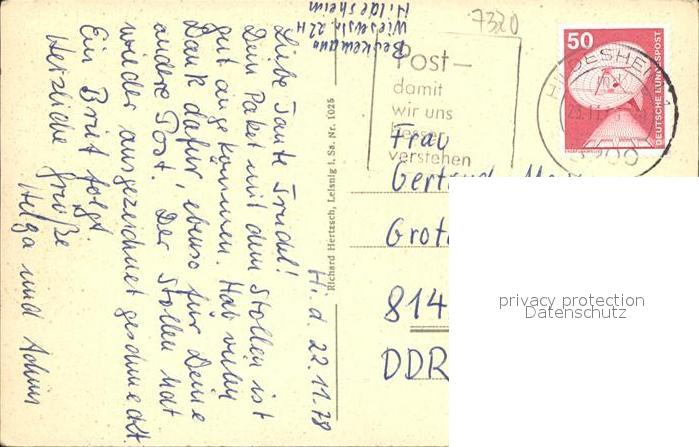 Beckemann
Wiesenstr. 22 H
Hildesheim
Hi. d. 22.11.78
Liebe Tante Trudel!
Dein Paket mit dem Stollen ist
gut angekommen. Hab vielen
Dank dafür, ebenso für Deine
andere Post! Der Stollen hat
wieder ausgezeichnet geschmeckt.
Ein Brief folgt.
Herzliche Grüße
Helga und Achim
Richard Hertzsch, Leisnig i. Sa. Nr. 1025
7320
Post –
damit
wir uns
besser
verstehen
50
DEUTSCHE BUNDESPOST
HILDESHEIM
3200
Frau
Gertrud
814
DDR
privacy protection
Datenschutz